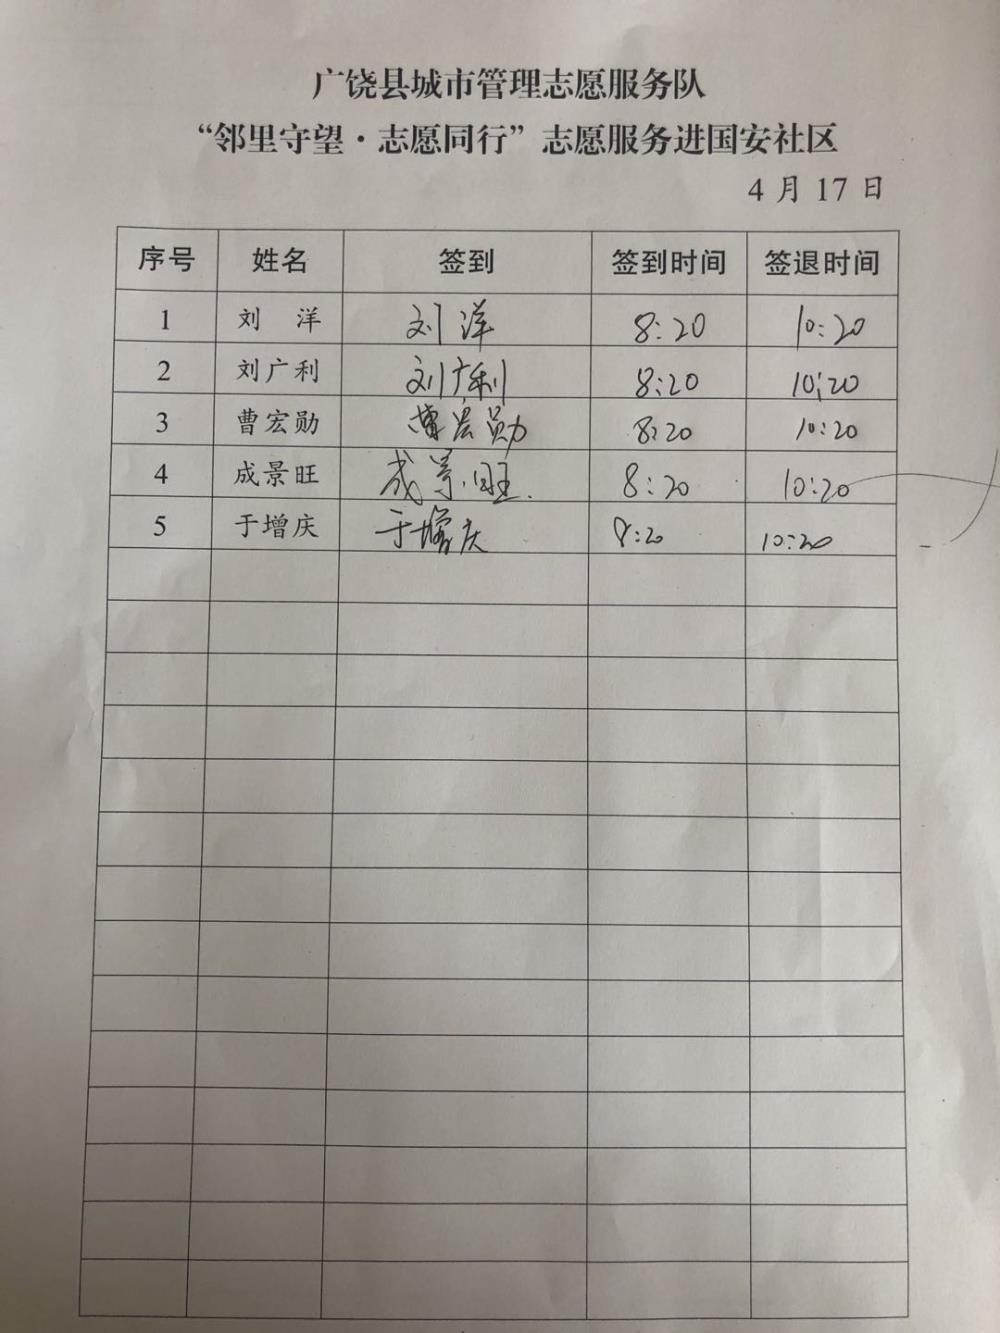 广饶县城市管理志愿服务队
“邻里守望·志愿同行”志愿服务进国安社区
4月17日
序号 姓名 签到 签到时间 签退时间
1 刘 洋 刘洋 8:20 10:20
2 刘广利 刘广利 8:20 10:20
3 曹宏勋 曹宏勋 8:20 10:20
4 成景旺 成景旺 8:20 10:20
5 于增庆 于增庆 8:20 10:20